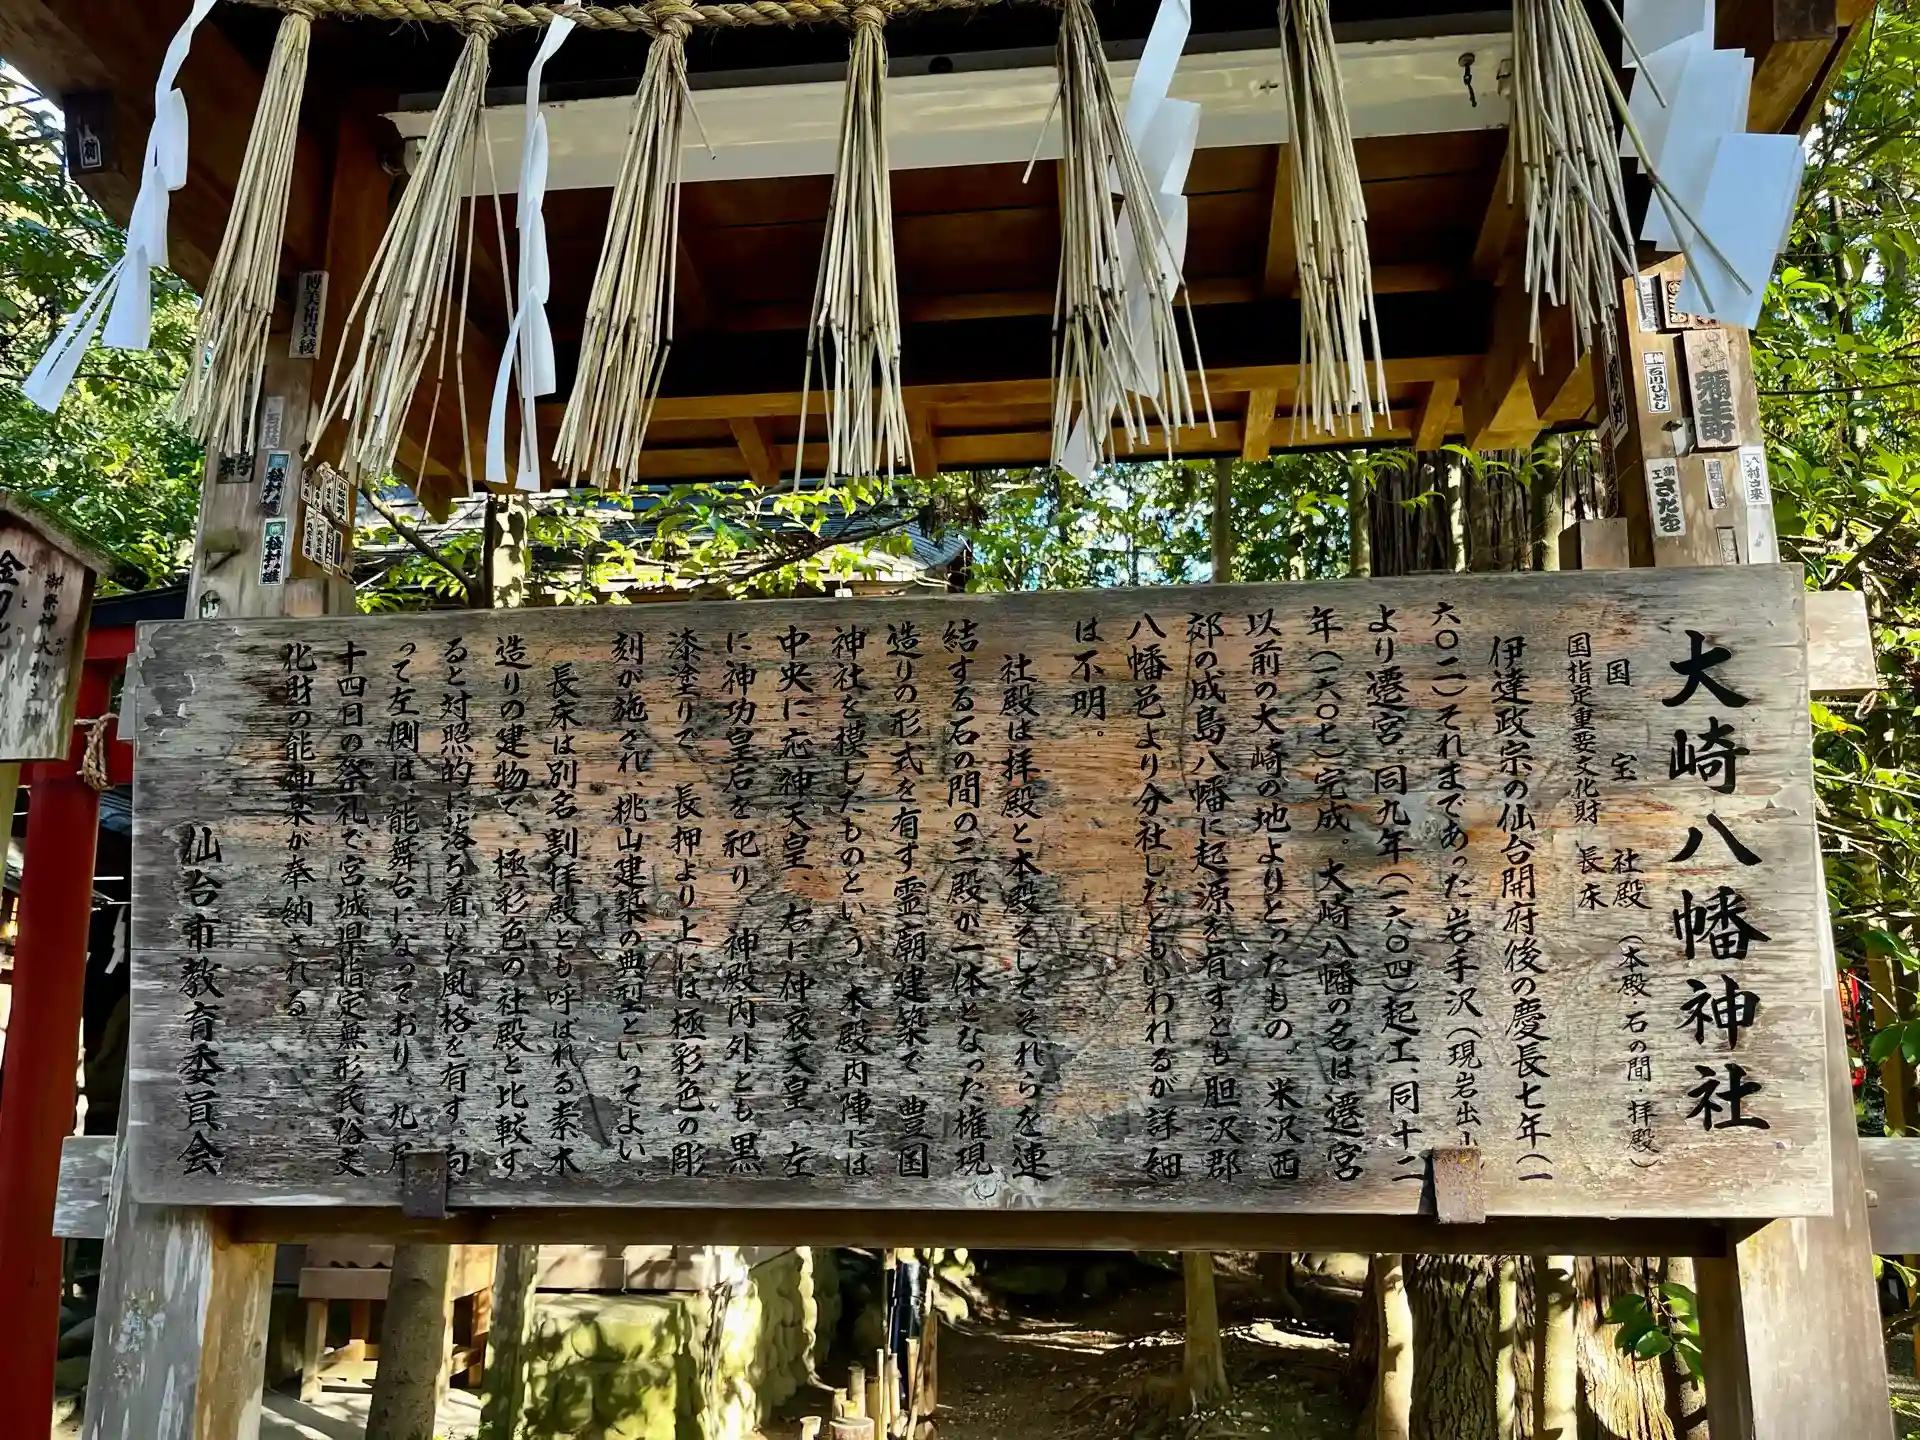 大崎八幡神社
国宝 社殿(本殿 石の間 拝殿)
国指定重要文化財 長床
伊達政宗の仙台開府後の慶長七年(一
六〇二)それまであった岩手沢(現岩出山
より遷宮。同九年(一六〇四)起工、同十二
年(一六〇七)完成。大崎八幡の名は遷宮
以前の大崎の地よりとったもの。米沢西
郊の成島八幡に起源を有すとも胆沢郡
八幡邑より分社したともいわれるが詳細
は不明。
社殿は拝殿と本殿そしてそれらを連
結する石の間の三殿が一体となった権現
造りの形式を有す霊廟建築で、豊国
神社を模したものという。本殿内陣には
中央に応神天皇、右に仲哀天皇、左
に神功皇后を祀り、神殿内外とも黒
漆塗りで、長押より上には極彩色の彫
刻が施され、桃山建築の典型といってよい。
長床は別名割拝殿とも呼ばれる素木
造りの建物で、極彩色の社殿と比較す
ると対照的に落ち着いた風格を有す。向
って左側は、能舞台になっており、九月
十四日の祭礼で宮城県指定無形民俗文
化財の能神楽が奉納される。
仙台市教育委員会
御祭神
石川ひとし